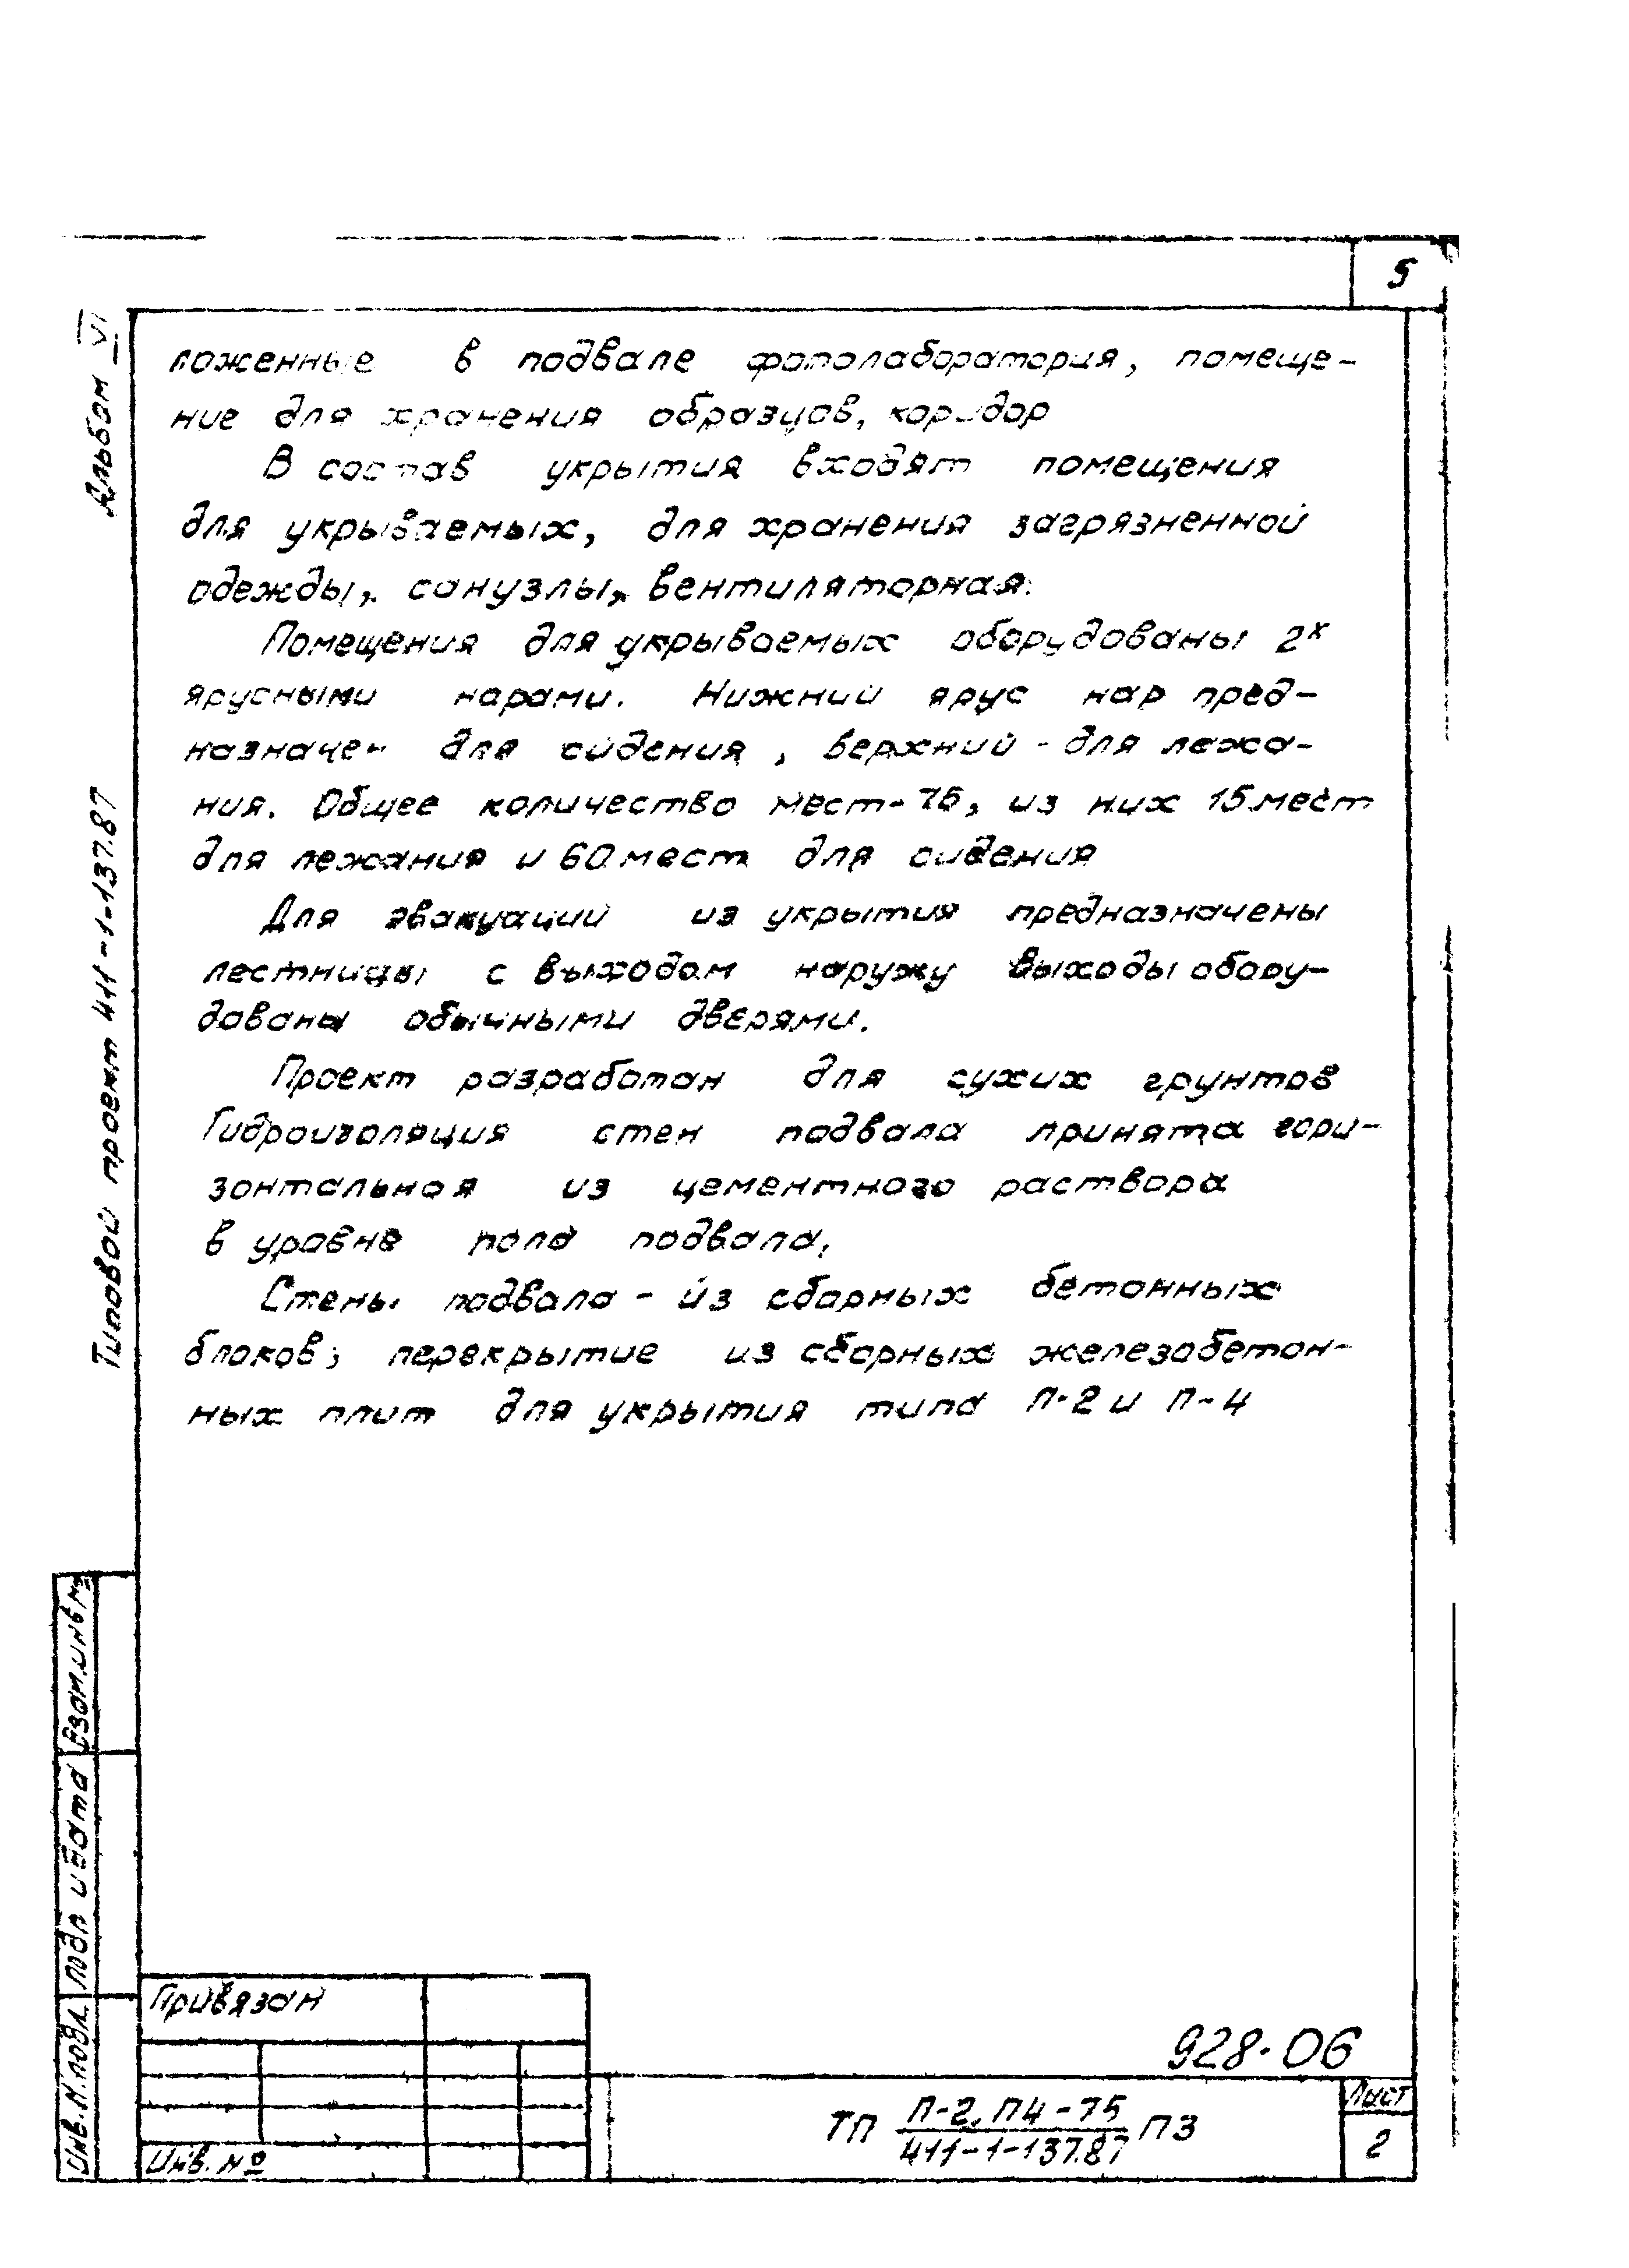 5
ложенные в подвале фотолаборатория, помеще-
ние для хранения образцов, коридор
В состав укрытия входят помещения
для укрываемых, для хранения загрязненной
одежды, санузлы, вентиляторная.
Помещения для укрываемых оборудованы 2х
ярусными нарами. Нижний ярус нар пред-
назначен для сидения, верхний - для лежа-
ния. Общее количество мест - 75, из них 15 мест
для лежания и 60 мест для сидения
Для эвакуации из укрытия предназначены
лестницы с выходом наружу Выходы обору-
дованы обычными дверями.
Проект разработан для сухих грунтов
Гидроизоляция стен подвала принята гори-
зонтальная из цементного раствора
в уровне пола подвала.
Стены подвала - из сборных бетонных
блоков; перекрытие из сборных железобетон-
ных плит для укрытия типа П-2 и П-4
Альбом VI
Типовой проект 411-1-137.87
Взам.инв.№
Подп и дата
Инв.№подл.
Привязан
Инв. №
928-06
ТП П-2, П4-75 ПЗ
411-1-137.87
Лист
2